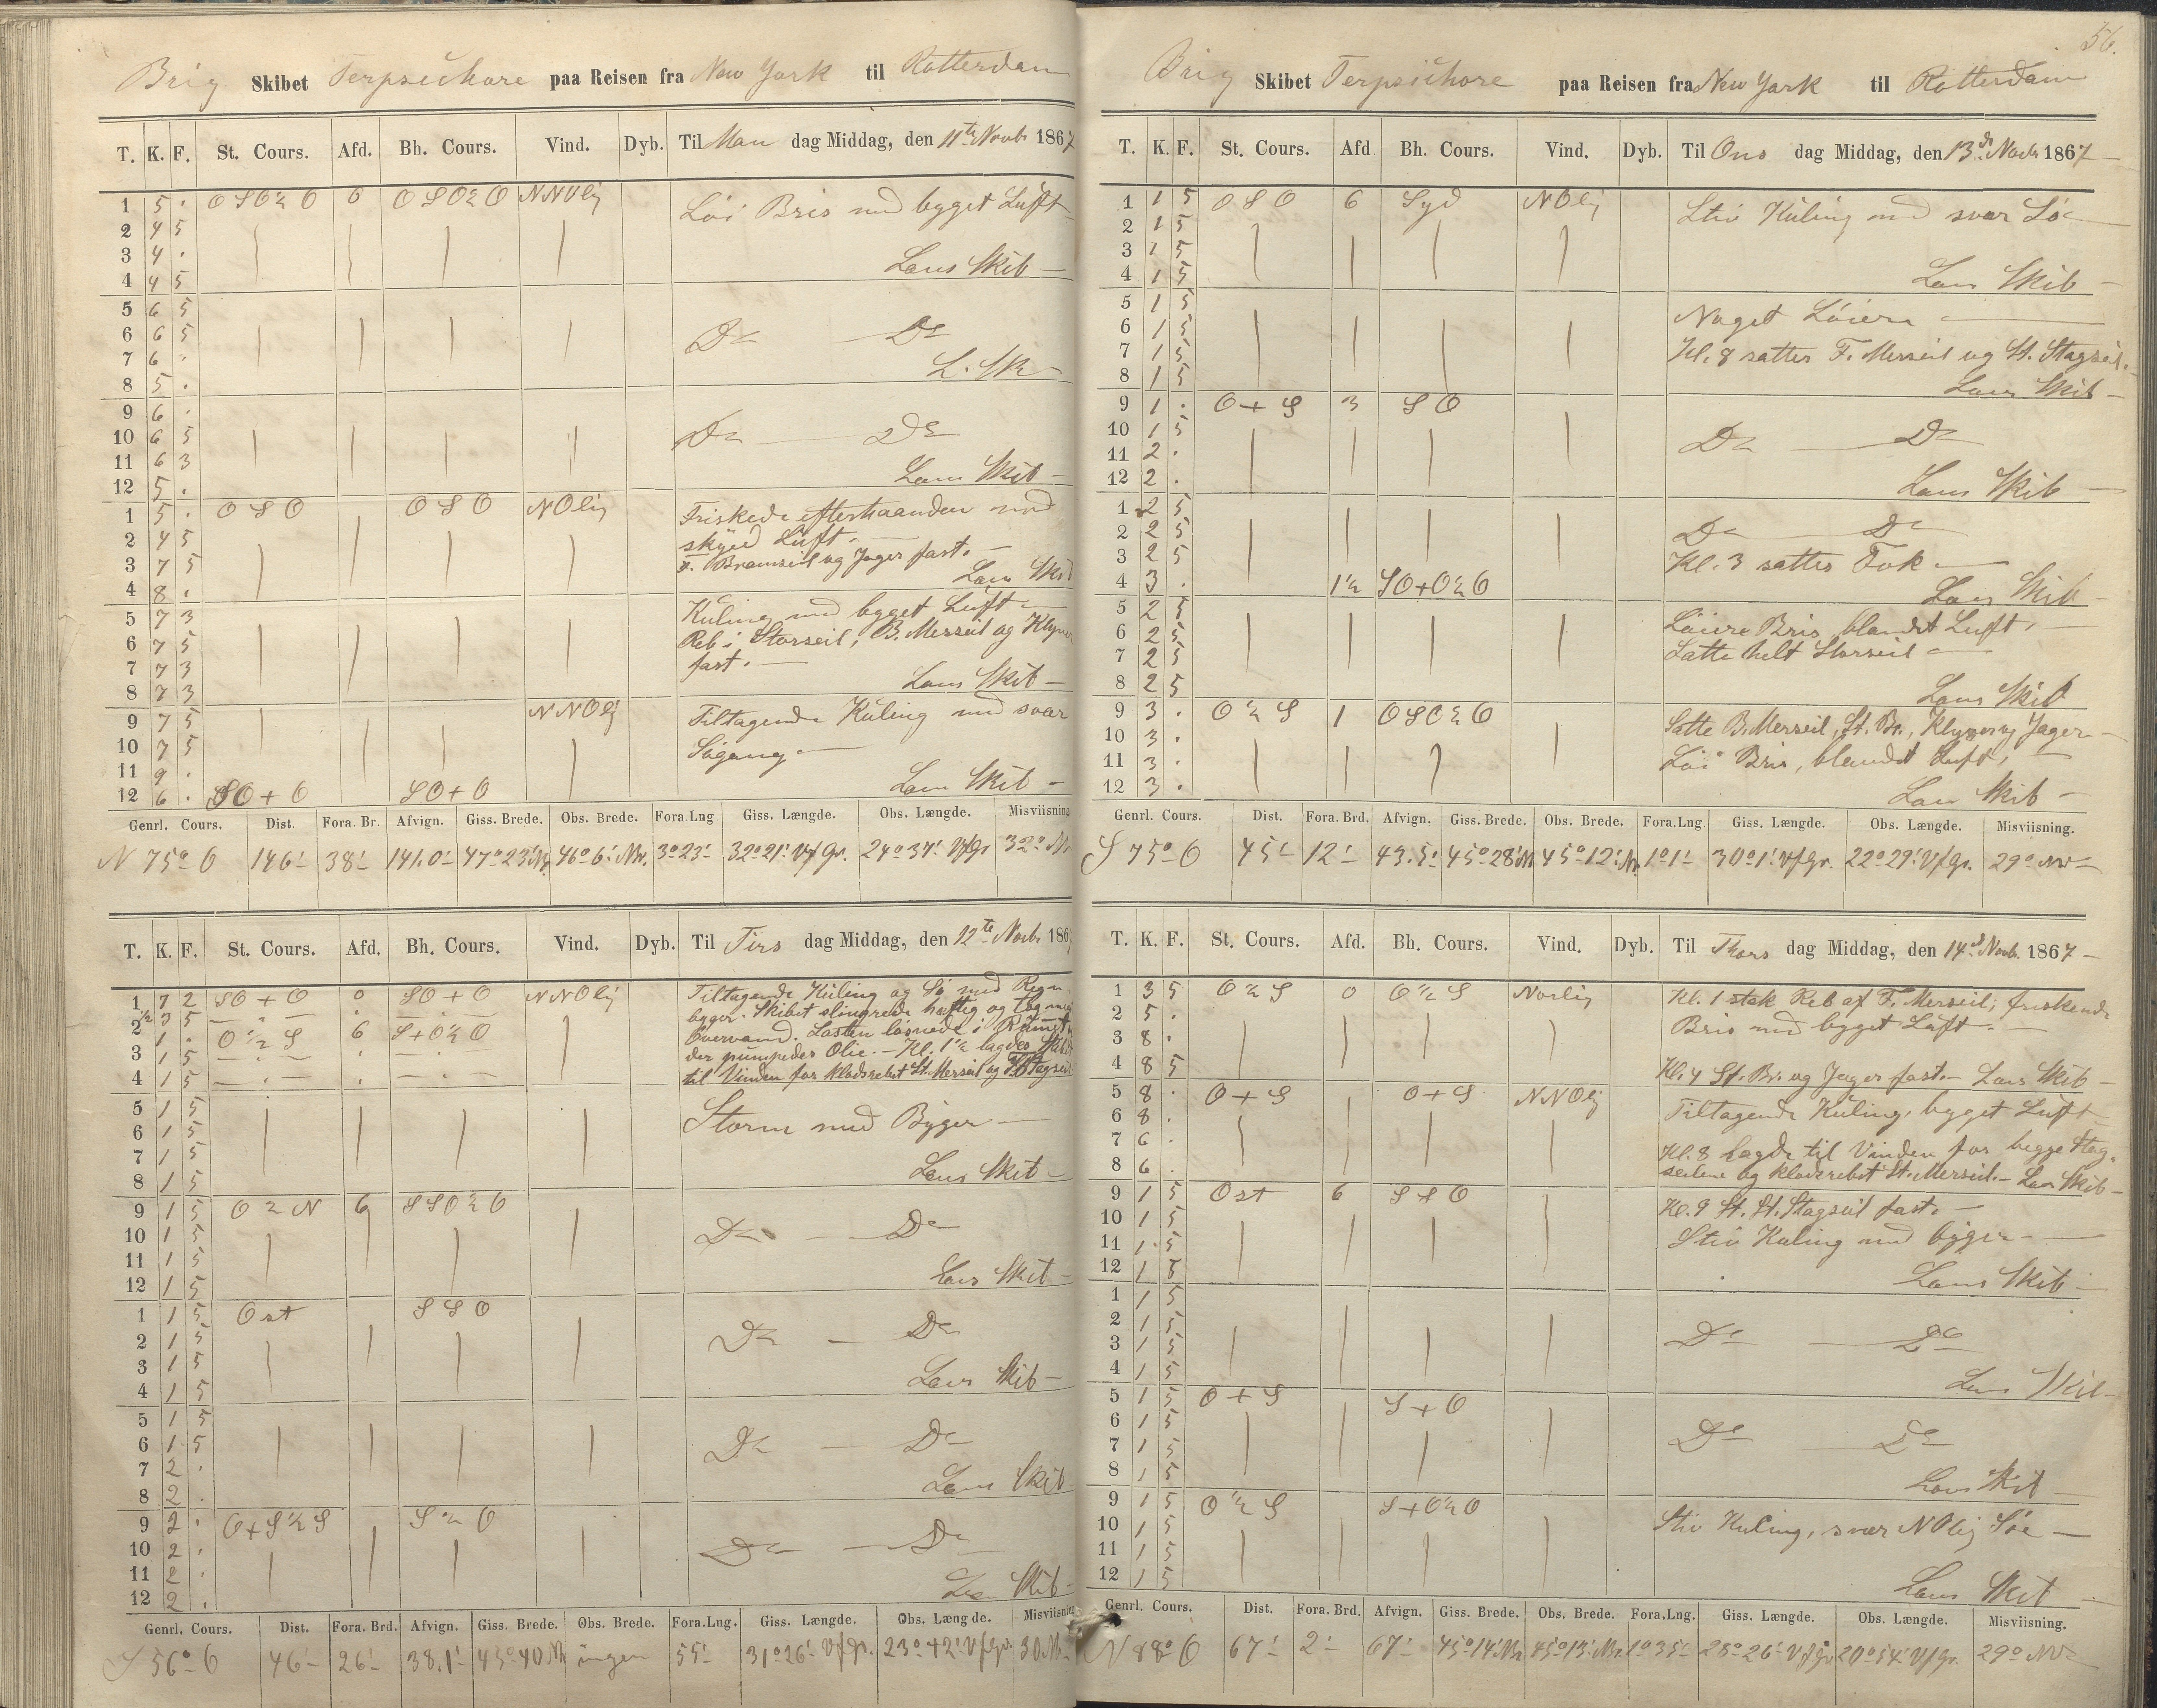 Brig Skibet Terpsichore paa Reisen fra New York til Rotterdam
T. K. F. St. Cours. Afd. Bh. Cours. Vind. Dyb. Til Man dag Middag, den 11te Novbr 1867
1 5 . OSO½O 0 OSO½O NNOlig Löi Bris med bygget Luft
2 4 5
3 4 . Lens Skib —
4 4 5
5 6 5
6 6 5 Do — Do
7 6 . L. Sk —
8 5 .
9 6 .
10 6 5 Do — Do
11 6 3 Lens Skib —
12 5 .
1 5 . OSO OSO NOlig Friskede efterhaanden med
2 4 5 skyed Luft. —
3 7 5 F. Bramseil og Jager fast. — Lens Skib
4 8 .
5 7 3 Kuling med bygget Luft —
6 7 5 Reb i Storseil, B. Merseil og Klyver
7 7 3 fast. —
8 7 3 Lens Skib —
9 7 5 NNOlig Tiltagende Kuling med svær
10 7 5 Sögang —
11 9 .
12 6 . SO+O SO+O Lens Skib —
Genrl. Cours. Dist. Fora. Br. Afvign. Giss. Brede. Obs. Brede. Fora.Lng Giss. Længde. Obs. Længde. Misviisning
N 75° O 146' 38' 141.0' 47°23' Nr. 46°6' Nr. 3°23' 32°21' V f Gr. 24°37' V f Gr 32°
T. K. F. St. Cours. Afd. Bh. Cours. Vind. Dyb. Til Tirs dag Middag, den 12te Novbr 186
1 7 2 SO+O 0 SO+O NNOlig Tiltagende Kuling og Sö med Regn
½ 3 5 — . — . — . — byger. Skibet slingrede hæftig og tog meget
2 1 . O½S 6 S+O½O Overvand. Lasten løsnede i Rummet
3 1 5 — . — . — . — der pumpedes Olie. — Kl. 1½ lagdes Skibet
4 1 5 — . — . — . — til Vinden for klodsrebet St. Merseil og Stagseil
5 1 5
6 1 5 Storm med Byger —
7 1 5
8 1 5 Lens Skib —
9 1 5 O½N 6 SSO½O
10 1 5 Do — Do
11 1 5
12 1 5 Lens Skib —
1 1 5 Ost SSO
2 1 5 Do — Do
3 1 5
4 1 5 Lens Skib —
5 1 5
6 1 5 Do — Do
7 2 .
8 2 . Lens Skib
9 2 . O+S½S S½O
10 2 . Do — Do
11 2 .
12 2 . Lens Skib
Genrl. Cours. Dist. Fora. Brd. Afvign. Giss. Brede. Obs. Brede. Fora.Lng. Giss. Længde. Obs. Længde. Misviisning
S 56° O 46' 26' 38.1' 45°40 N ingen 55' 31°26' V f Gr. 23°42' V f Gr. 30
56.
Brig Skibet Terpsichore paa Reisen fra New York til Rotterdam
T. K. F. St. Cours. Afd Bh. Cours. Vind. Dyb. Til Ons dag Middag, den 13de Novbr 1867 —
1 1 5 OSO 6 Syd NOlig Stiv Kuling med svær Sö —
2 1 5
3 1 5
4 1 5 Lens Skib —
5 1 5 Noget Löiere —
6 1 5
7 1 5 Kl. 8 sattes F. Merseil og St. Stagseil. —
8 1 5 Lens Skib —
9 1 . O+S 3 SO
10 1 5 Do — Do
11 2 .
12 2 . Lens Skib —
1 2 5
2 2 5 Do — Do
3 2 5 Kl. 3 sattes Fok —
4 3 . 1½ SO+O½O Lens Skib —
5 2 5 Löiere Bris, blandet Luft, —
6 2 5
7 2 5 Satte helt Storseil —
8 2 5 Lens Skib
9 3 . O½S 1 OSO½O Satte B. Merseil, St. Br., Klyver og Jager —
10 3 .
11 3 . Löi Bris, blandet Luft, —
12 3 . Lens Skib —
Genrl. Cours. Dist. Fora. Brd. Afvign. Giss. Brede. Obs. Brede. Fora.Lng. Giss. Længde. Obs. Længde. Misviisning.
S 75° O 45' 12' 43.5' 45°28' N 45°12' Nr. 1°1' 30°1' V f Gr. 22°29' V f Gr. 29° NV
T. K. F. St. Cours. Afd. Bh. Cours. Vind. Dyb. Til Thors dag Middag, den 14de Novb. 1867 —
1 3 5 O½S 0 O½S Norlig Kl. 1 stak Reb af F. Merseil; friskende
2 5 . Bris med bygget Luft. —
3 8 .
4 8 5 Kl. 4 St. Br. og Jager fast. — Lens Skib —
5 8 . O+S O+S NNOlig Tiltagende Kuling, bygget Luft
6 8 .
7 6 . Kl. 8 lagde til Vinden for begge Stag-
8 6 . seilene og klodsrebet St. Merseil. — Lens Skib —
9 1 5 Ost 6 S+O Kl. 9 St. St. Stagseil fast. —
10 1 5 Stiv Kuling med byger —
11 1 5
12 1 5 Lens Skib —
1 1 5
2 1 5 Do — Do
3 1 5
4 1 5 Lens Skib —
5 1 5 O+S S+O
6 1 5 Do — Do
7 1 5
8 1 5 Lens Skib —
9 1 5 O½S S+O½O
10 1 5 Stiv Kuling, svær NOlig Söe —
11 1 5
12 1 5 Lens Skib
Genrl. Cours. Dist. Fora. Brd. Afvign. Giss. Brede. Obs. Brede. Fora.Lng. Giss. Længde. Obs. Længde. Misviisning.
N 88° O 67' 2' 67' 45°14' Nr 45°13' Nr. 1°35' 28°26' V f Gr 20°54' V f Gr. 29° NV